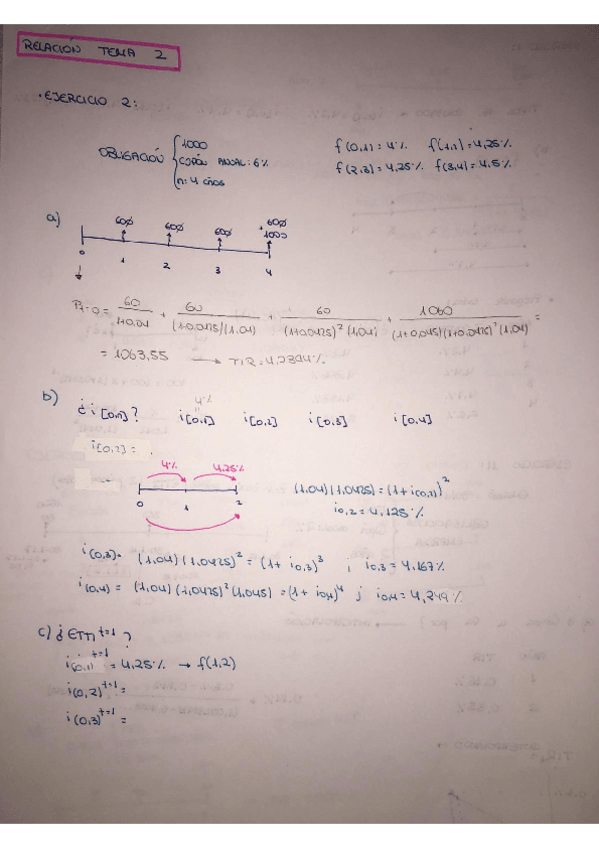 RELACIÓN TEMA 2
• EJERCICIO 2:
OBLIGACIÓN { 1000
CUPÓN ANUAL: 6%
n: 4 años
f(0,1)= 4% f(1,2)= 4,25%
f(2,3)= 4,25% f(3,4)= 4,5%
a)
60 60 60 + 60
1000
0 1 2 3 4
Pt=0 = 60/1+0,04 + 60/(1+0,0425)(1,04) + 60/(1+0,0425)² (1,04) + 1060/(1+0,045)(1+0,0425)² (1,04) =
= 1063,55 → TIR = 4,2394%
b)
¿ i [0,n]? i[0,1] i[0,2] i[0,3] i[0,4]
4%
i[0,2] =
4% 4,25%
0 1 2
(1,04)(1,0425) = (1 + i(0,2))²
i0,2 = 4,125%
i(0,3) = (1,04)(1,0425)² = (1 + i0,3)³ ; i0,3 = 4,167%
i(0,4) = (1,04)(1,0425)² (1,045) = (1 + i0,4)⁴ ; i0,4 = 4,249%
c) ¿ ETTI t=1 ?
i(0,1) t=1 = 4,25% → f(1,2)
i(0,2) t=1 =
i(0,3) t=1 =